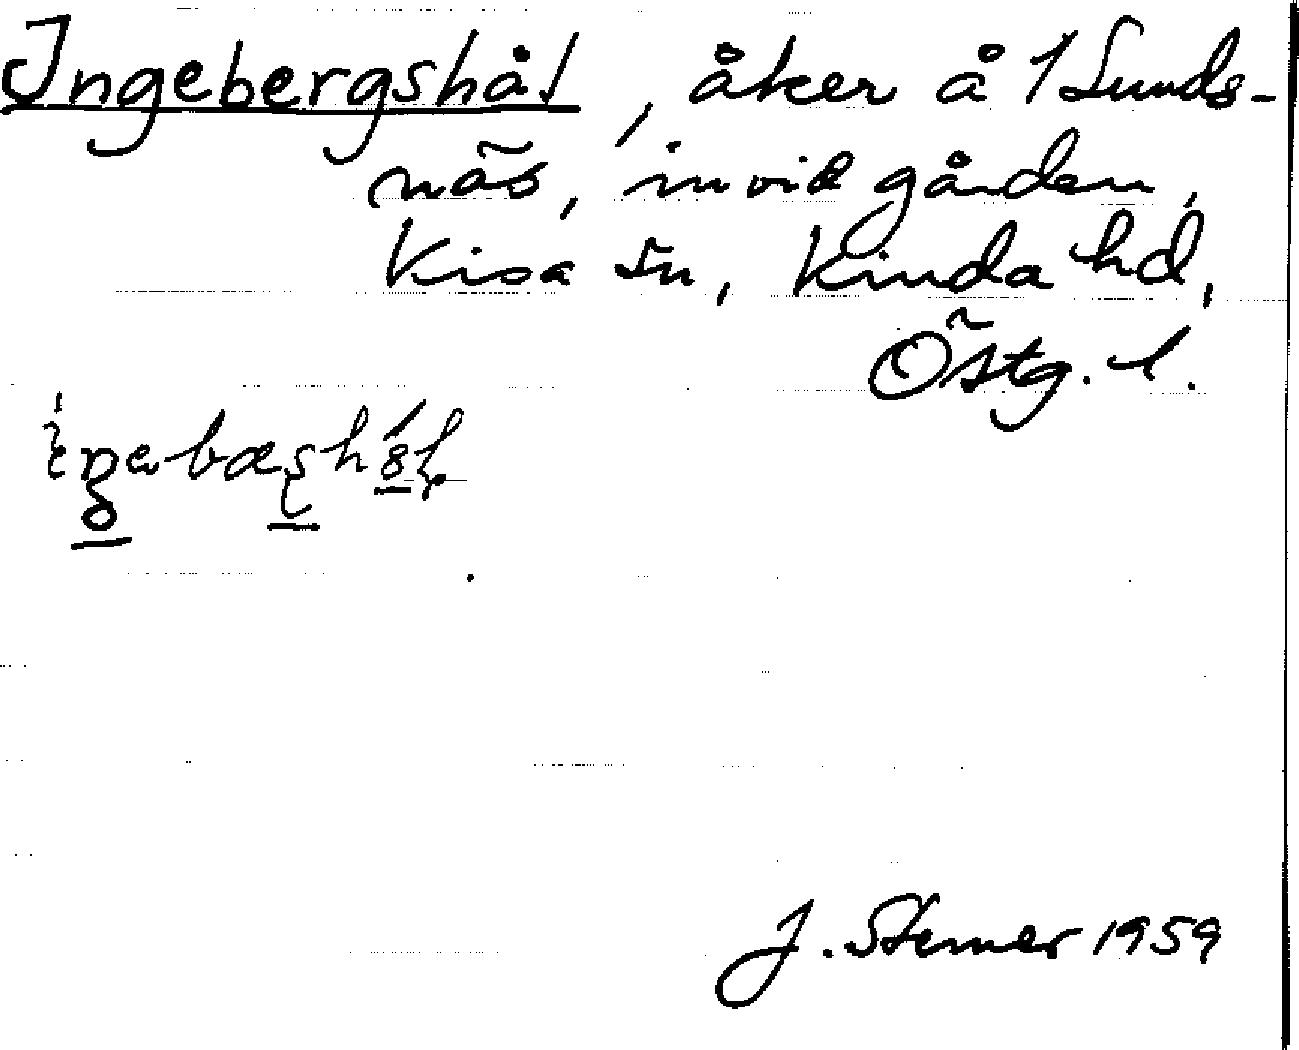 Ingebergshål, åker å 1 Sunds-
näs, invid gården,
Kisa sn, Kinda hd,
Östg. l.
J. Sterner 1959